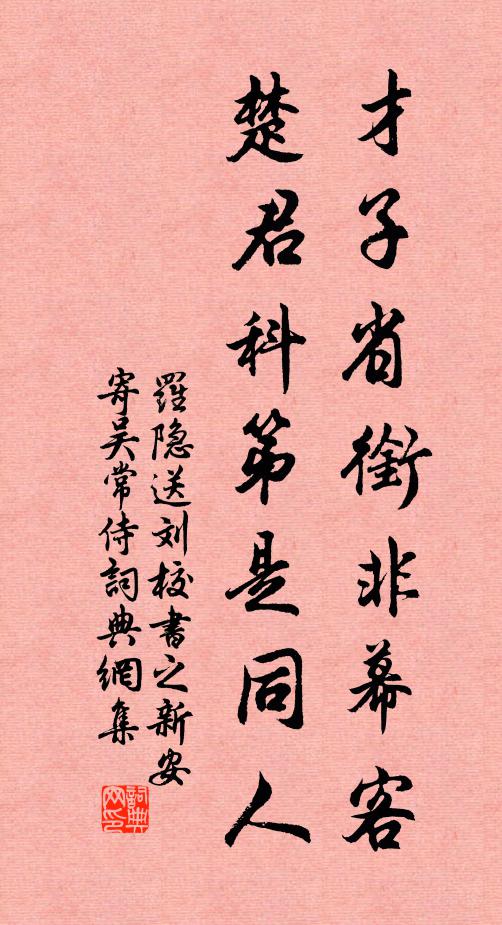 才子省銜非幕客
楚君科第是同人
羅隐送刘校書之新安
寄吴常侍詞典網集
詞典网印